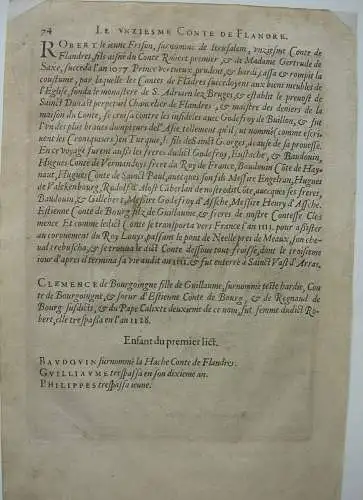 74 LE VNZIESME CONTE DE FLANDRE.
ROBERT le ieune Frison, surnommé de Ierusalem, vnziesme Conte de
Flandres, fils aisné du Conte Robert premier, & de Madame Gertrude de
Saxe, succeda l'an 1077. Prince vertueux, prudent, & hardi, cassa & rompit la
coustume, par laquelle les Contes de Fladres succedoient aux biens meubles de
l'Eglise, fonda le monastere de S. Adrian lez Bruges, & establit le preuost de
Sainct Donatt perpetuel Chancelier de Flandres, & maistre des deniers de la
maison du Conte, se croisa contre les infideles auec Godefroy de Buillon, & fut
l'vn des plus braues dompteurs de l'Asie, tellement qu'il fut nommé (comme escri-
uent les Croniques) des Turcques, le fils de Sainct Georges, à cause de sa prouesse.
En ce voyage furent aussi les freres dudict Godefroy, Eustache, & Baudouin,
Hugues Conte de Vermandoys frere du Roy de France, Baudouin Conte de Hay-
naut, Hugues Conte de Sainct Paul, auecques son fils Messire Engelran, Hugues
de Valckenbourg, Rudolf d'Alost Châberlan de nostredit Côte, auecques ses freres,
Baudouin, & Gillebert, Messire Godefroy d'Assche, Messire Henry d'Assche,
Estienne Conte de Bourg filz de Guillaume, & freres de nostre Contesse Cle-
mence Et comme ledict Conte se transporta vers France l'an 1111. pour assister
au coronement du Roy Louys, passant le pont de Neelle prez de Meaux, son che-
ual tresbucha, & se trouua ledit Conte dessoubz tout froissé, dont le troisiesme
iour d'apres il termina sa vie audit an 1111. & fut enterré à Sainct Vast d'Arras.
CLEMENCE de Bourgoingne fille de Guillaume, surnommé teste hardie, Con-
te de Bourgoingne, & soeur d'Estienne Conte de Bourg, & de Regnaud de
Bourg susdicts, & du Pape Calixte deuxiesme de ce nom, fut femme dudict Ro-
bert, elle trespassa en l'an 1128.
Enfant du premier lict.
BAVDOVIN surnommé la Hache Conte de Flandres.
GVILLIAVME trespassa en son dixieme an.
PHILIPPES trespassa ieune.